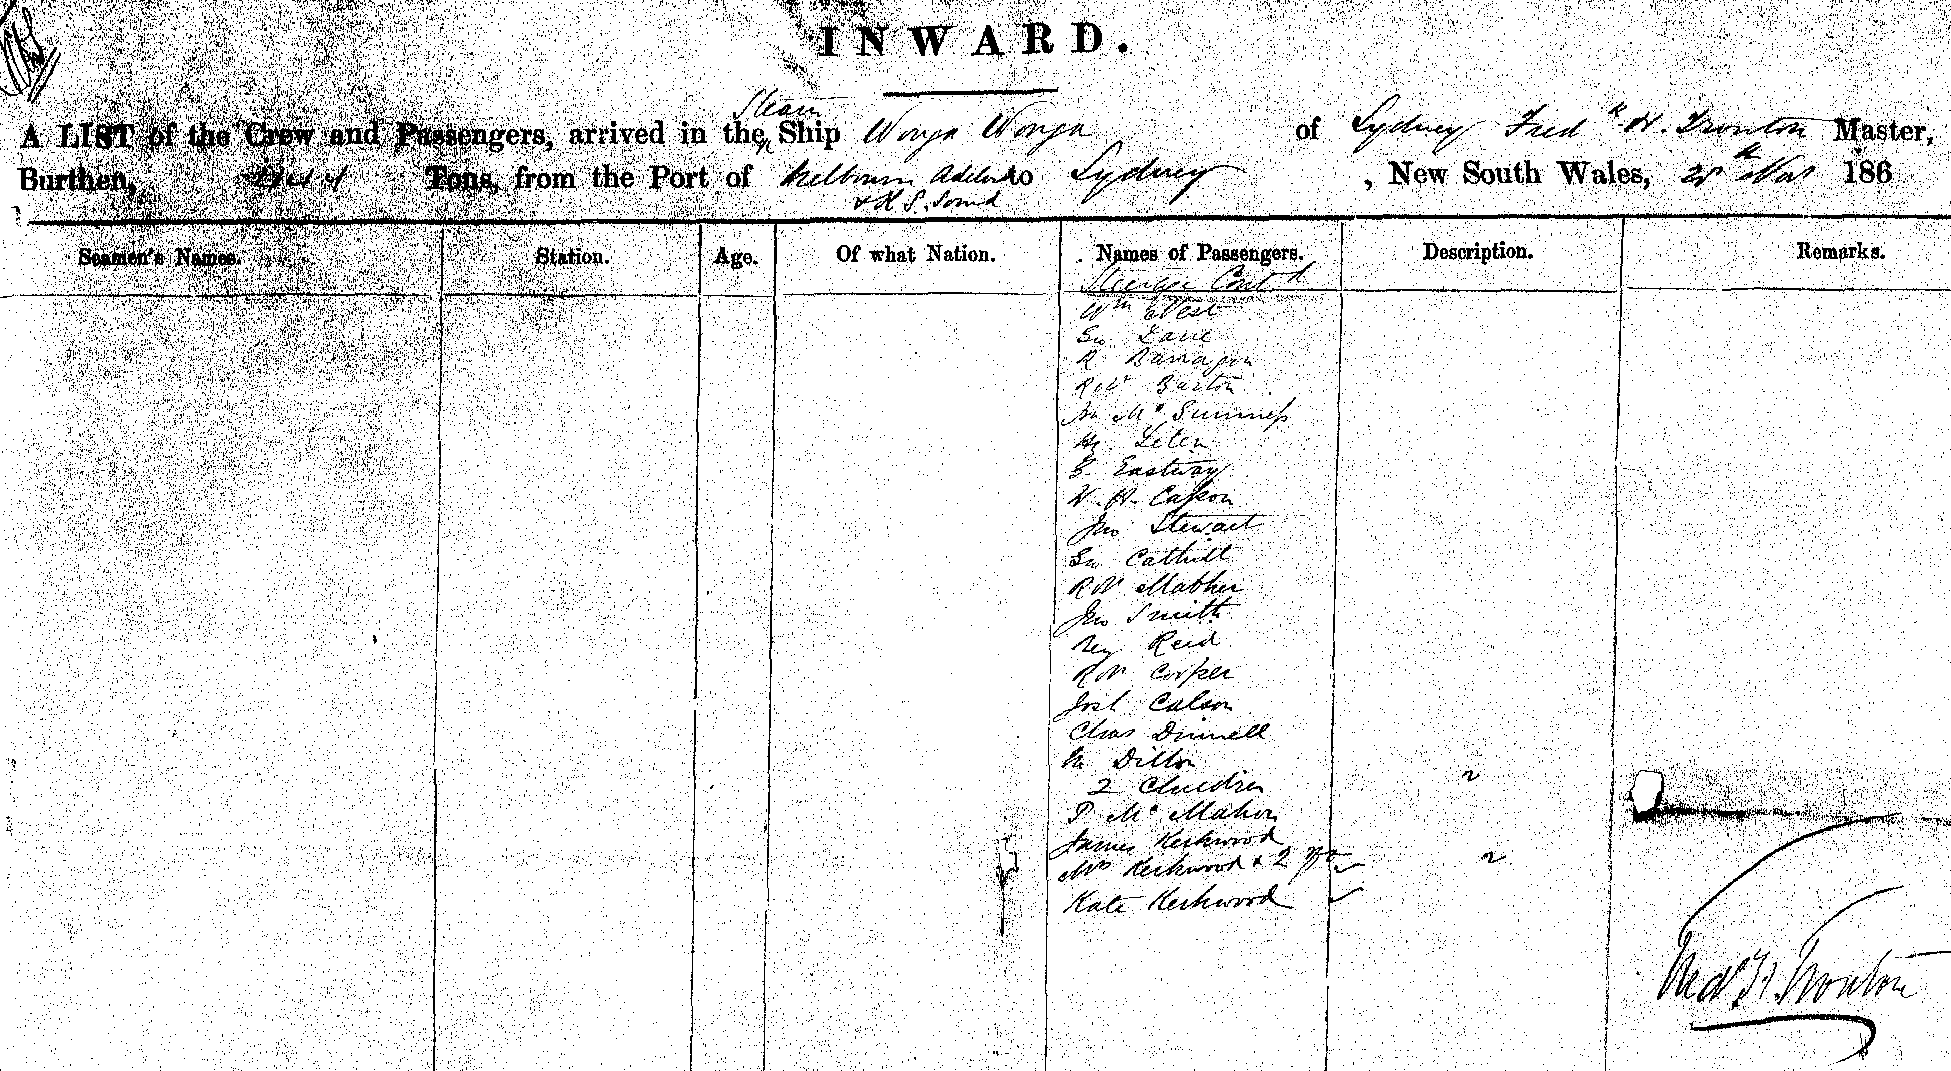 INWARD.
Steam
A LIST of the Crew and Passengers, arrived in the Ship Wonga Wonga of Sydney Fredk H. Trouton Master,
Burthen, Tons, from the Port of Melbourne Adelaide to Sydney, New South Wales, Nov 186
& K G Sound
Seamen's Names. Station. Age. Of what Nation. Names of Passengers. Description. Remarks.
Steerage Contd
Wm West
Geo Lane
R
Robt Barton
Jno Mc
Hy
E Eastway
W. H. Casson
Jno Stewart
Geo
Robt
Jno Smith
Hy Reid
Robt Cooper
Josh
Chas Dinnell
Dillon
2 Children
P McMahon
James Kerkwood
Mrs Kerkwood & 2
Kate Kerkwood
Fredk H. Trouton